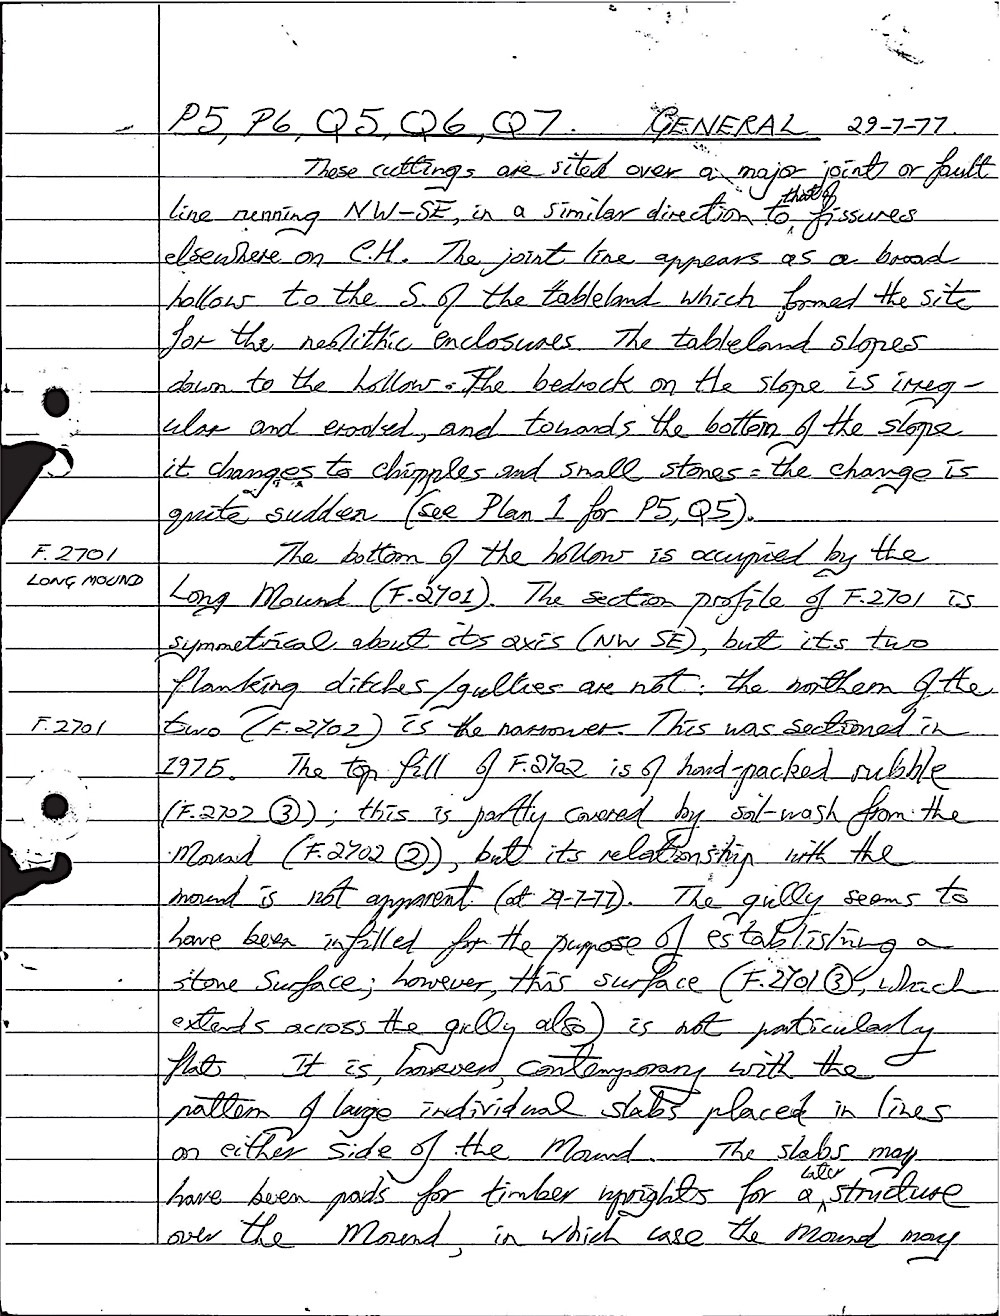 P5, P6, Q5, Q6, Q7. GENERAL 29-7-77.
These cuttings are sited over a major joint or fault
line running NW-SE, in a similar direction to that of fissures
elsewhere on C.H. The joint line appears as a broad
hollow to the S. of the tableland which formed the site
for the neolithic enclosures. The tableland slopes
down to the hollow. The bedrock on the slope is irreg-
ular and eroded, and towards the bottom of the slope
it changes to chipples and small stones = the change is
quite sudden (see Plan 1 for P5, Q5).
F. 2701 The bottom of the hollow is occupied by the
LONG MOUND Long Mound (F.2701). The section profile of F.2701 is
symmetrical about its axis (NW SE), but its two
flanking ditches/gullies are not: the northern of the
F.2701 two (F.2702) is the narrower. This was sectioned in
1975. The top fill of F.2702 is of hard-packed rubble
(F.2702 ③); this is partly covered by soil-wash from the
Mound (F.2702 ②), but its relationship with the
mound is not apparent (at 29-7-77). The gully seems to
have been infilled for the purpose of establishing a
stone surface; however, this surface (F.2701 ③, which
extends across the gully also) is not particularly
flat. It is, however, contemporary with the
pattern of large individual slabs placed in lines
on either side of the Mound. The slabs may
have been pads for timber uprights for a later structure
over the Mound, in which case the Mound may